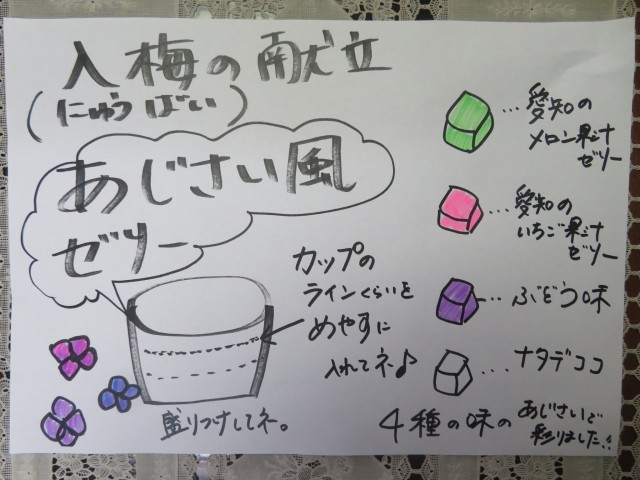 入梅の献立
(にゅうばい)
あじさい風
ゼリー
カップの
ラインくらいを
めやすに
入れてネ♪
盛りつけしてネ。
…愛知の
メロン果汁
ゼリー
…愛知の
いちご果汁
ゼリー
…ぶどう味
…ナタデココ
4種の味の
あじさいで
彩りました!!